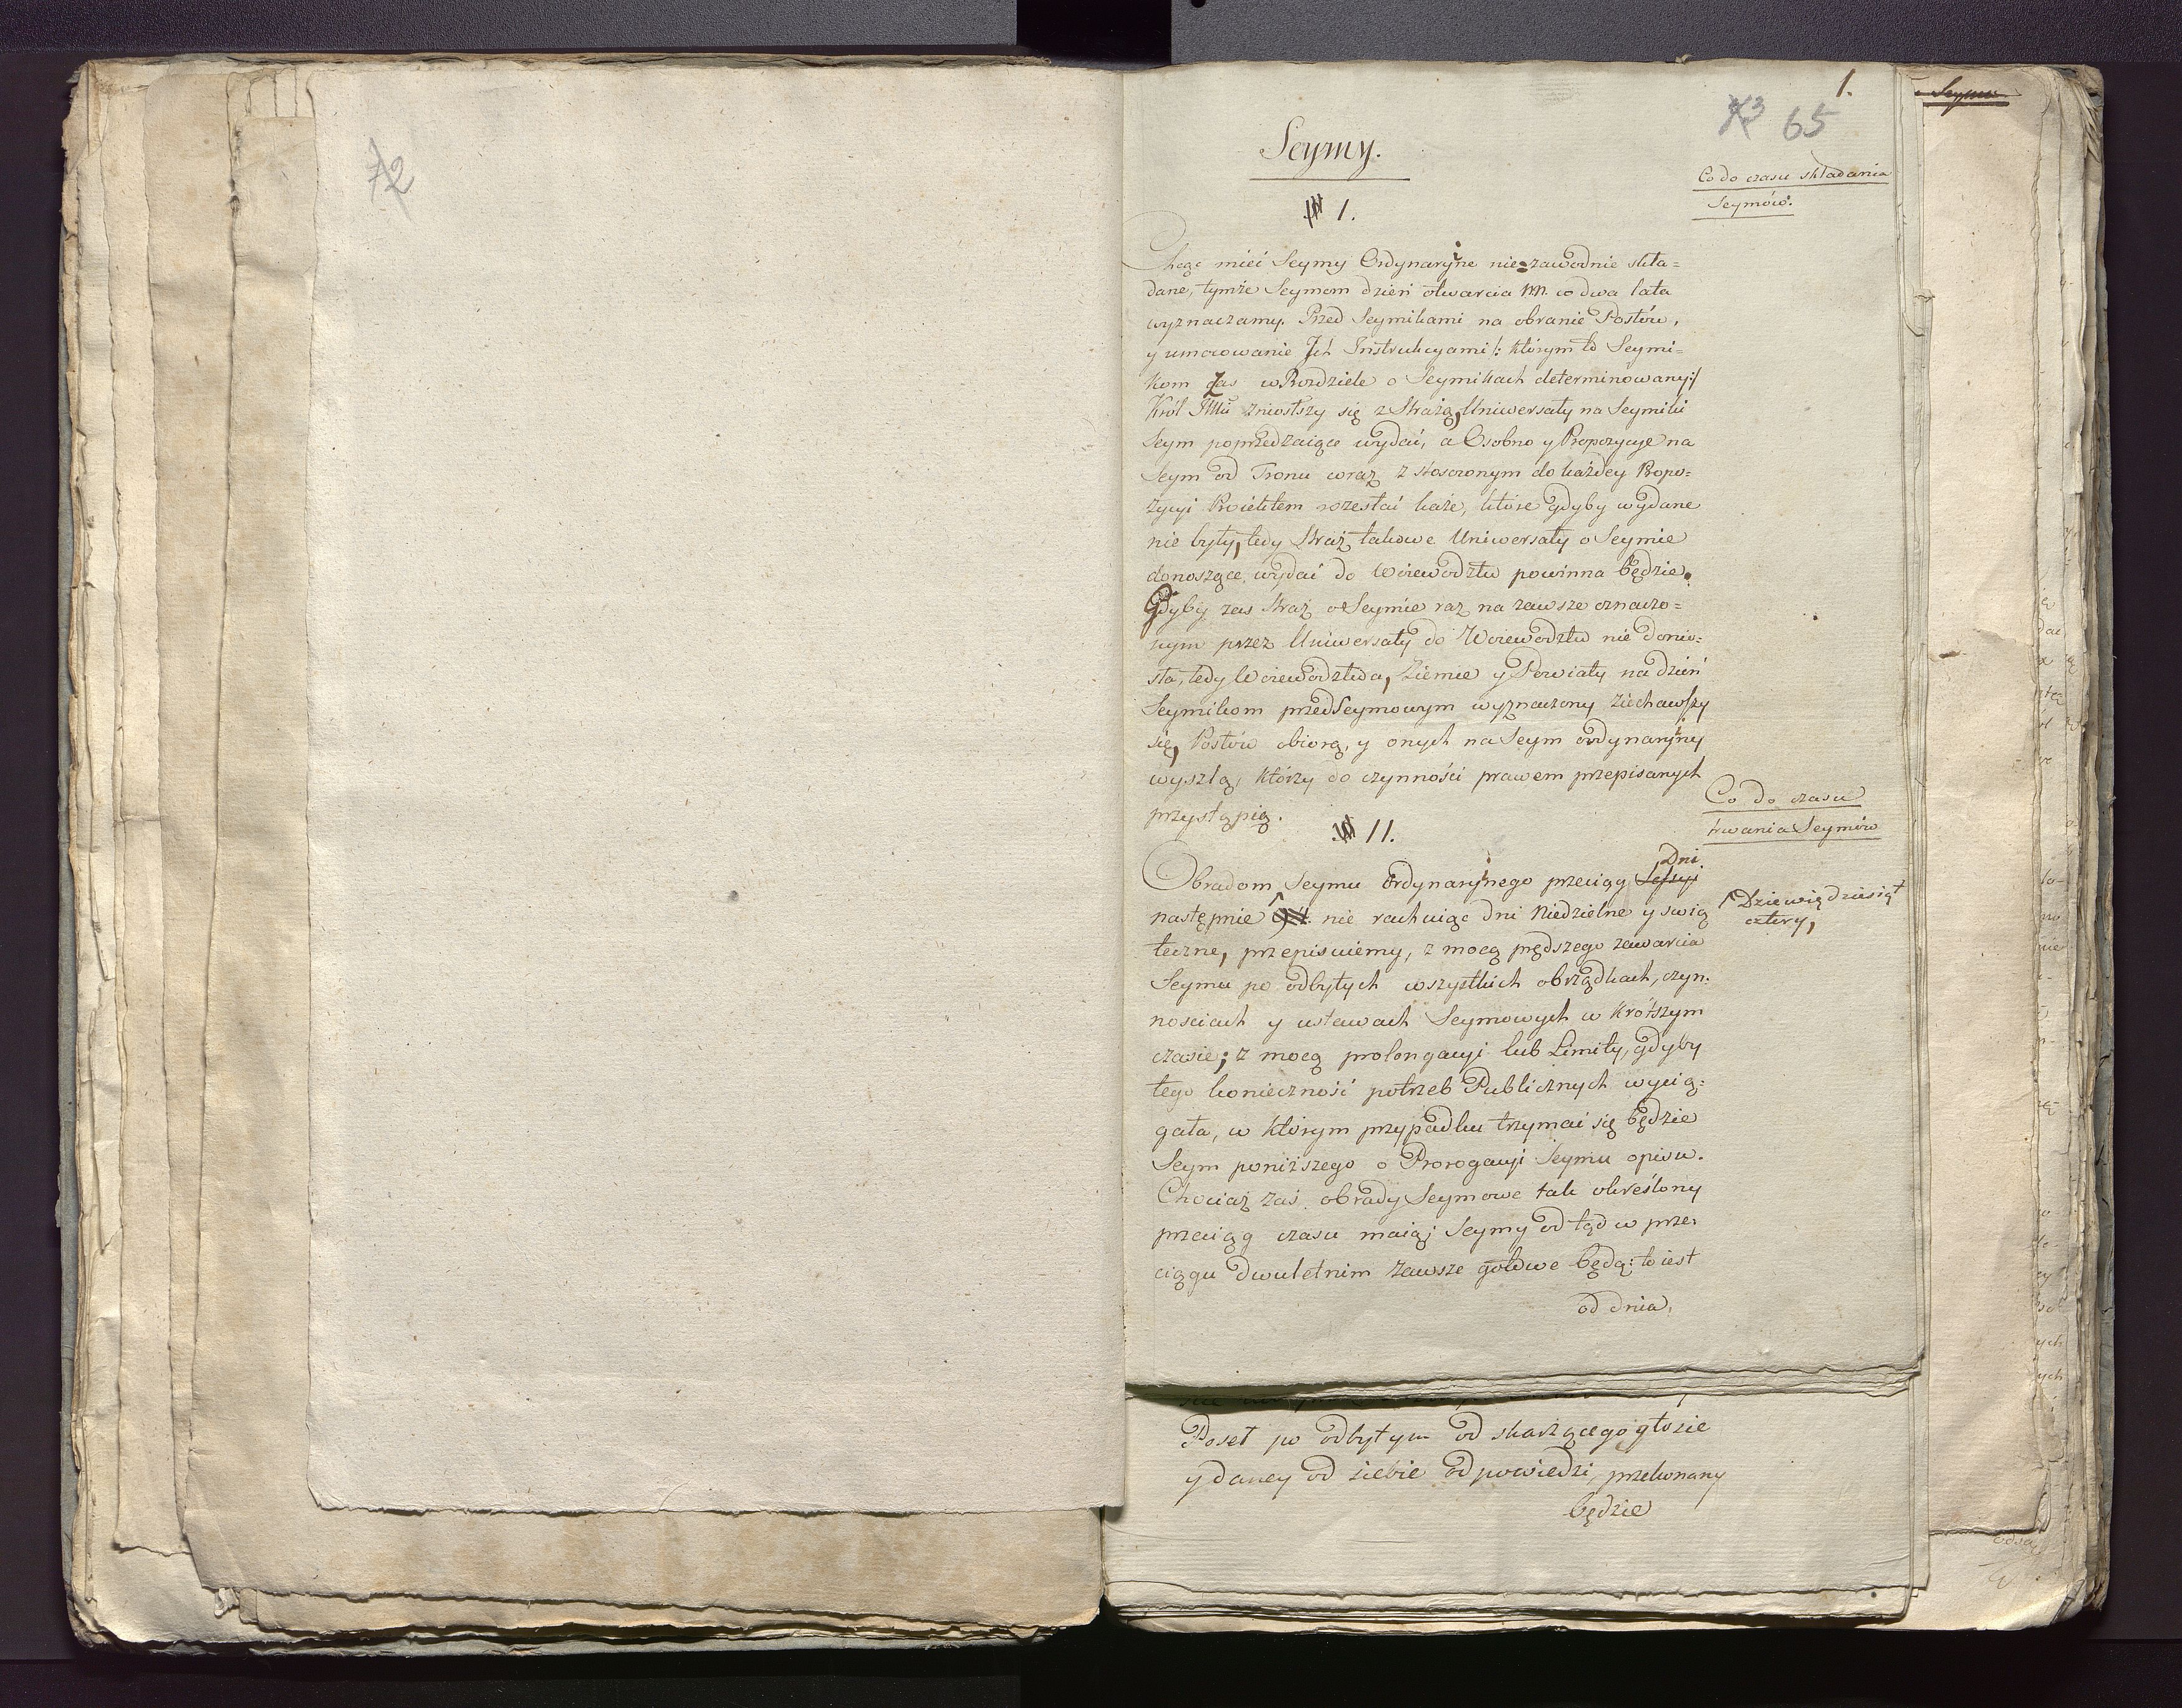 72
1.
73 65
Seymy.
Co do czasu składania
Seymów.
I.
Chcąc mieć Seymy Ordynaryine niezawodnie skła=
dane, tymże Seymom dzień otwarcia NN. co dwa lata
wyznaczamy. Przed Seymikami na obranie Posłów,
y umocowanie Ich Instrukcyami /: którym to Seymi=
kom Czas w Rozdziele o Seymikach determinowany :/
Król JMć zniosłszy się z Strażą, Uniwersały na Seymiki
Seym poprzedzaiące wydać, a Osobno y Propozycye na
Seym od Tronu wraz z stosownym do każdey Propo=
zycyi Proiektem rozesłać każe, które gdyby wydane
nie były, tedy Straż takowe Uniwersały o Seymie
donoszące, wydać do Woiewodztw powinna będzie.
Gdyby zas Straż o Seymie raz na zawsze oznaczo=
nym przez Uniwersały do Woiewodztw nie donio=
sła, tedy Woiewodztwa, Ziemie y Powiaty na dzień
Seymikom przedSeymowym wyznaczony ziechawszy
się, Posłów obiorą, y onych na Seym ordynaryiny
wyszlą, którzy do czynności prawem przepisanych
przystąpią.
Co do czasu
trwania Seymów
II.
Dni
Obradom Seymu Ordynaryinego przeciąg Sessyi
następnie 94. nie rachuiąc dni Niedzielne y swią
Dziewiędziesiąt
cztery,
teczne, przepisuiemy, z mocą prędszego zawarcia
Seymu po odbytych wszystkich obrządkach, czyn=
nosciach y ustawach Seymowych w krótszym
czasie; z mocą prolongacyi lub Limity, gdyby
tego konieczność potrzeb Publicznych wycią=
gała, w którym przypadku trzymać się będzie
Seym poniższego o Prorogacyi Seymu opisu.
Chociaż zaś obrady Seymowe tak określony
przeciąg czasu maią; Seymy od tąd w prze=
ciągu dwuletnim zawsze gotowe będą: to iest
od dnia,
Poseł po odbytym od skarżącego głosie
y daney od siebie odpowiedzi, przekonany
będzie